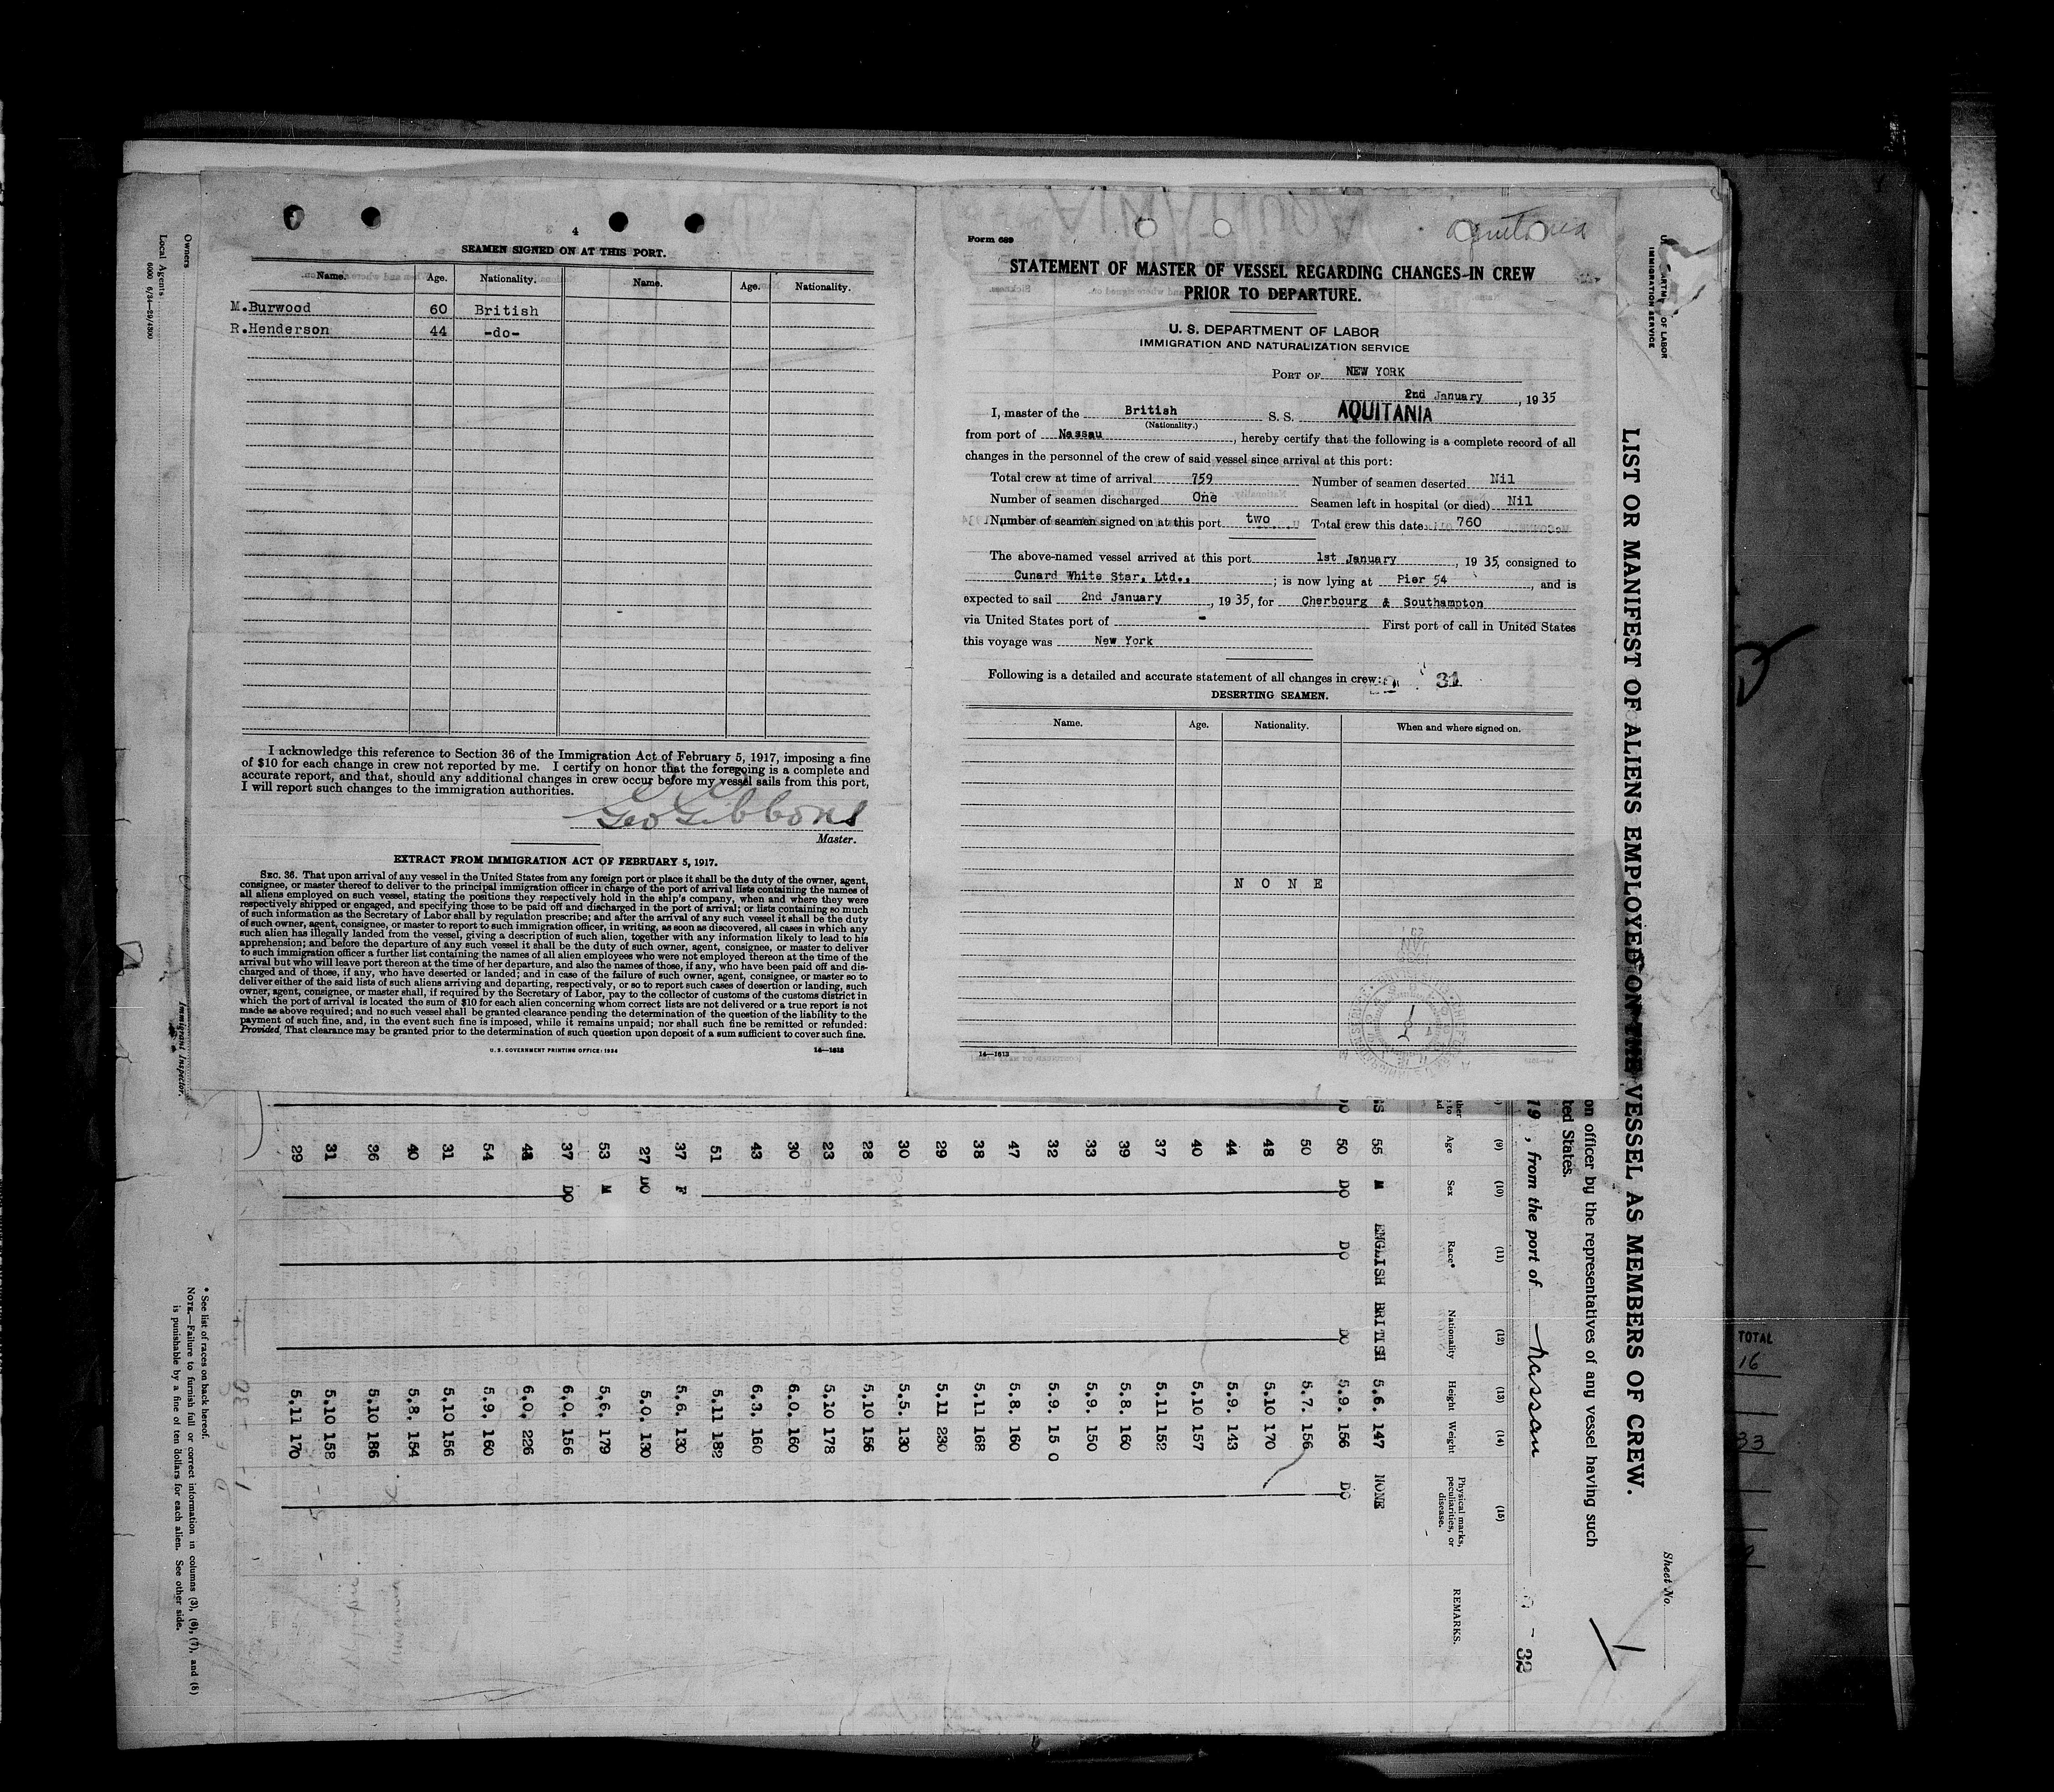 4
SEAMEN SIGNED ON AT THIS PORT.
Name. Age. Nationality. Name. Age. Nationality.
M.Burwood 60 British
R.Henderson 44 -do-
I acknowledge this reference to Section 36 of the Immigration Act of February 5, 1917, imposing a fine
of $10 for each change in crew not reported by me. I certify on honor that the foregoing is a complete and
accurate report, and that, should any additional changes in crew occur before my vessel sails from this port,
I will report such changes to the immigration authorities.
Geo Gibbons
Master.
EXTRACT FROM IMMIGRATION ACT OF FEBRUARY 5, 1917.
SEC. 36. That upon arrival of any vessel in the United States from any foreign port or place it shall be the duty of the owner, agent,
consignee, or master thereof to deliver to the principal immigration officer in charge of the port of arrival lists containing the names of
all aliens employed on such vessel, stating the positions they respectively hold in the ship's company, when and where they were
respectively shipped or engaged, and specifying those to be paid off and discharged in the port of arrival; or lists containing so much
of such information as the Secretary of Labor shall by regulation prescribe; and after the arrival of any such vessel it shall be the duty
of such owner, agent, consignee, or master to report to such immigration officer, in writing, as soon as discovered, all cases in which any
such alien has illegally landed from the vessel, giving a description of such alien, together with any information likely to lead to his
apprehension; and before the departure of any such vessel it shall be the duty of such owner, agent, consignee, or master to deliver
to such immigration officer a further list containing the names of all alien employees who were not employed thereon at the time of the
arrival but who will leave port thereon at the time of her departure, and also the names of those, if any, who have been paid off and dis-
charged and of those, if any, who have deserted or landed; and in case of the failure of such owner, agent, consignee, or master so to
deliver either of the said lists of such aliens arriving and departing, respectively, or so to report such cases of desertion or landing, such
owner, agent, consignee, or master shall, if required by the Secretary of Labor, pay to the collector of customs of the customs district in
which the port of arrival is located the sum of $10 for each alien concerning whom correct lists are not delivered or a true report is not
made as above required; and no such vessel shall be granted clearance pending the determination of the question of the liability to the
payment of such fine, and, in the event such fine is imposed, while it remains unpaid; nor shall such fine be remitted or refunded:
Provided, That clearance may be granted prior to the determination of such question upon deposit of a sum sufficient to cover such fine.
U.S. GOVERNMENT PRINTING OFFICE: 1934 14—1613
Aquitania
Form 689
STATEMENT OF MASTER OF VESSEL REGARDING CHANGES IN CREW
PRIOR TO DEPARTURE.
U. S. DEPARTMENT OF LABOR
IMMIGRATION AND NATURALIZATION SERVICE
PORT OF NEW YORK
2nd January, 1935
I, master of the British S. S. AQUITANIA
(Nationality.)
from port of Nassau, hereby certify that the following is a complete record of all
changes in the personnel of the crew of said vessel since arrival at this port:
Total crew at time of arrival 759 Number of seamen deserted Nil
Number of seamen discharged One Seamen left in hospital (or died) Nil
Number of seamen signed on at this port two Total crew this date 760
The above-named vessel arrived at this port 1st January, 1935, consigned to
Cunard White Star, Ltd., ; is now lying at Pier 54, and is
expected to sail 2nd January, 1935, for Cherbourg & Southampton
via United States port of - First port of call in United States
this voyage was New York
Following is a detailed and accurate statement of all changes in crew:
31
DESERTING SEAMEN.
Name. Age. Nationality. When and where signed on.
N O N E
14—1613
U. OF LABOR
IMMIGRATION SERVICE
Sheet No.
LIST OR MANIFEST OF ALIENS EMPLOYED ON THE VESSEL AS MEMBERS OF CREW.
on officer by the representatives of any vessel having such
ted States.
19 , from the port of Nassau
32
(9) (10) (11) (12) (13) (14) (15)
Age Sex Race* Nationality Height Weight Physical marks, peculiarities, or disease. REMARKS.
55 M ENGLISH BRITISH 5.6. 147 NONE
50 DO DO DO 5.9. 156 DO
50 5.7. 156
48 5.10 170
44 5.9. 143
40 5.10 157
37 5.11 152
39 5.8. 160
33 5.9. 150
32 5.9. 15 0
47 5.8. 160
38 5.11 168
29 5.11 230
30 5.5. 130
28 5.10 156
23 5.10 178
30 6.0. 160
43 6.3. 160
51 5.11 182
37 F 5.6. 130
27 DO 5.0. 130
53 M 5.6. 179
37 DO 6.0. 156
48 6.0. 226
54 5.9. 160
31 5.10 156
40 5.8. 154
36 5.10 186
31 5.10 158
29 5.11 170
* See list of races on back hereof.
NOTE.—Failure to furnish full or correct information in columns (3), (6), (7), and (8)
is punishable by a fine of ten dollars for each alien. See other side.
Owners
Local Agents
Immigrant Inspector.
TOTAL
16
33